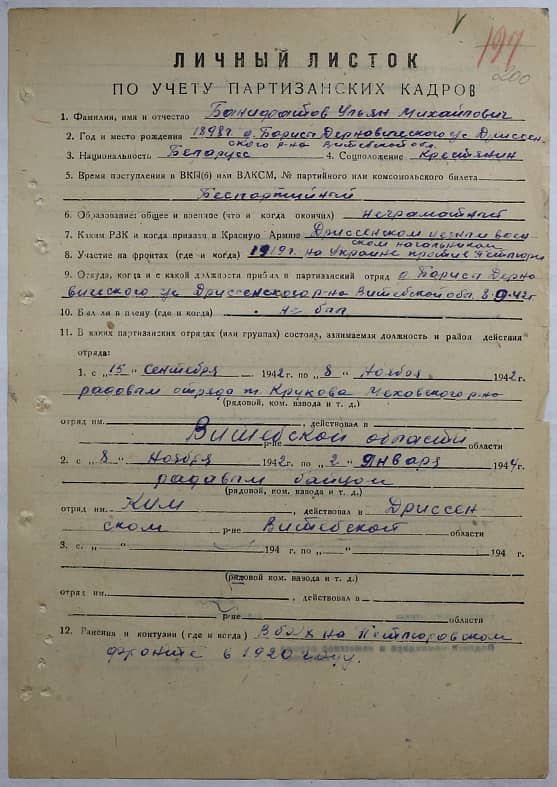 197
200
ЛИЧНЫЙ ЛИСТОК
ПО УЧЕТУ ПАРТИЗАНСКИХ КАДРОВ
1. Фамилия, имя и отчество Ульян Михайлович
2. Год и место рождения 1898г д. Бориса Дерновического с/с Дриссен
ского р-на Витебской обл.
3. Национальность Беларусс 4. Соцположение Крестянин
5. Время поступления в ВКП(б) или ВЛКСМ, № партийного или комсомольского билета
Беспартийный
6. Образование: общее и военное (что и когда окончил) неграмотный
7. Каким РЗК и когда призван в Красную Армию Дриссенском воен
ском начальником
8. Участие на фронтах (где и когда) 1919г. на Украине против Петлюри
9. Откуда, когда и с какой должности прибыл в партизанский отряд д. Бориса Дерно
вического с/с Дриссенского р-на Витебской обл. 8.9.42г
10. Был ли в плену (где и когда) не был
11. В каких партизанских отрядах (или группах) состоял, занимаемая должность и район действия
отряда:
1. с „15“ Сентября 1942г. по „8“ Ноября 1942г.
радовым отряда т. Крукова Меховского р-на
(рядовой, ком. взвода и т. д.)
отряд им. , действовал в
Витебской области
р-не области
2. с „8“ Ноября 1942г. по „2“ Января 1944г.
радовым бойцом
(рядовой, ком. взвода и т. д.)
отряд им. КИМ , действовал в Дриссен
ском р-не Витебской области
3. с „ “ 194 г. по „ “ 194 г.
(рядовой ком. взвода и т. д.)
отряд им. , действовал в
р-не области
12. Ранения и контузии (где и когда) В боях на Петлюровском
фронте в 1920 году.